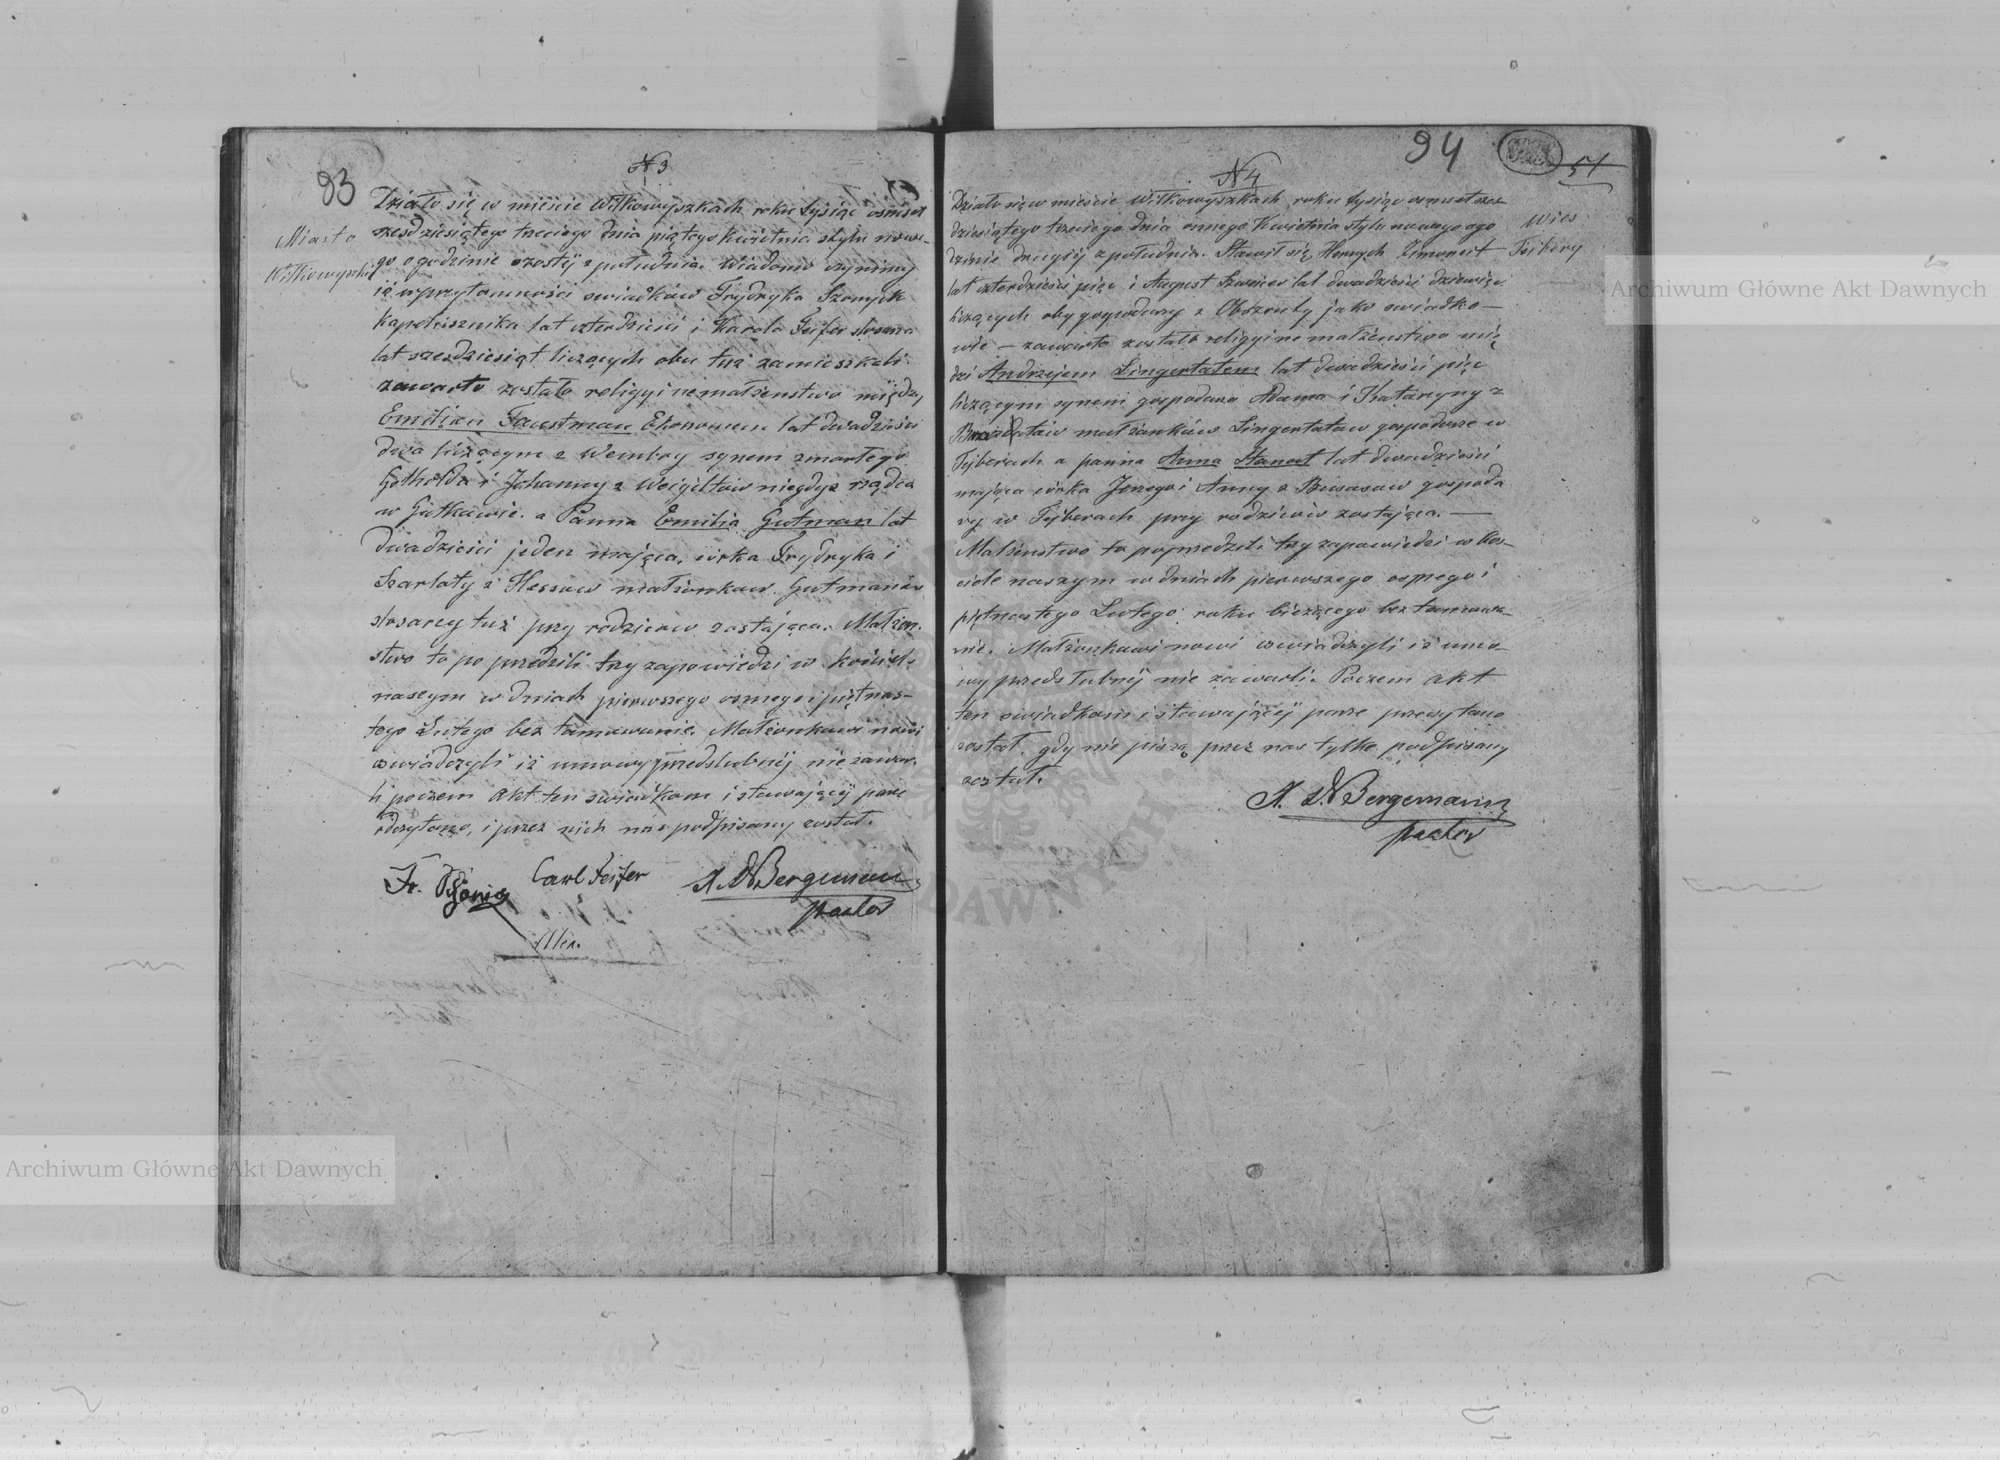 83
N 3
Miasto
Wiłkowyszki
Działo się w mieście Wiłkowyszkach roku tysiąc osmset
sześdziesiątego trzeciego dnia piątego kwietnia stylu nowe-
go o godzinie szostej z południa. Wiadomo czynimy
iż w przytomności swiadków Frydryka
kapelusznika lat czterdzieści i Karola Feifer slosarza
lat szesdziesiąt liczących obu tuż zamieszkali
zawarto zostało religyine małżenstwo między
Emilian Faustman Ekonomem lat dwadzieścia
dwa liczącym z synem zmarłego
Gotholda i Johanny z niegdyś rządca
w a Panna Emilia Gutman lat
dwadzieści jeden mająca, córka Frydryka i
Szarloty z małżonkow Gutmanów
slosarzy tuż przy rodzicow zostająca. Małżen-
stwo to poprzedzili trzy zapowiedzi w
naszym w dniach pierwszego osmego i piętnas-
tego Lutego bez tamowanie. Małżonkowi nowi
oswiadczyli iż umowy przedslubnej nie zawar-
li poczem Akt ten swiadkom i stawającej parze
odczytano, i przez nich nas podpisany został.
Carl Feifer
A. W Bergemann
pastor
94
51
N 4
Wies
Fejbery
Działo się w mieście Wiłkowyszkach roku tysiąc osmset szes-
dziesiątego trzeciego dnia osmego Kwietnia stylu nowego o go
dzinie z południa. Stawił się Henrych
lat czterdzieści pięc i August lat dwadzieści dziewięc
liczących oby gospodarzy z Obszruty jako swiadko-
wie — zawarto zostało religyine małżenstwo mię
dzi Andrzejem Lingertatem lat dwadzieści pięc
liczącym synem gospodarza Adama i Katarzyny z
małżonków Lingertatow gospodarze w
Fejberach a panna Anna Stanat lat dwadzieści
mająca córka Jerzego i Anny z gospoda
rzy w Fejberach przy rodziców zostająca. —
Małżenstwo to poprzedzili trzy zapowiedzi w kos-
ciele naszym w dniach pierwszego osmego i
piętnastego Lutego roku bieżącego bez tamowa-
nie. Małżonkowi nowi oswiadczyli iż umo-
wy przedslubnej nie zawarli. Poczem Akt
ten swiadkom i stawającej parze przeczytano
został, gdy nie piszą przez nas tylko podpisany
został.
A. W Bergemann
pastor
Archiwum Główne Akt Dawnych
Archiwum Główne Akt Dawnych